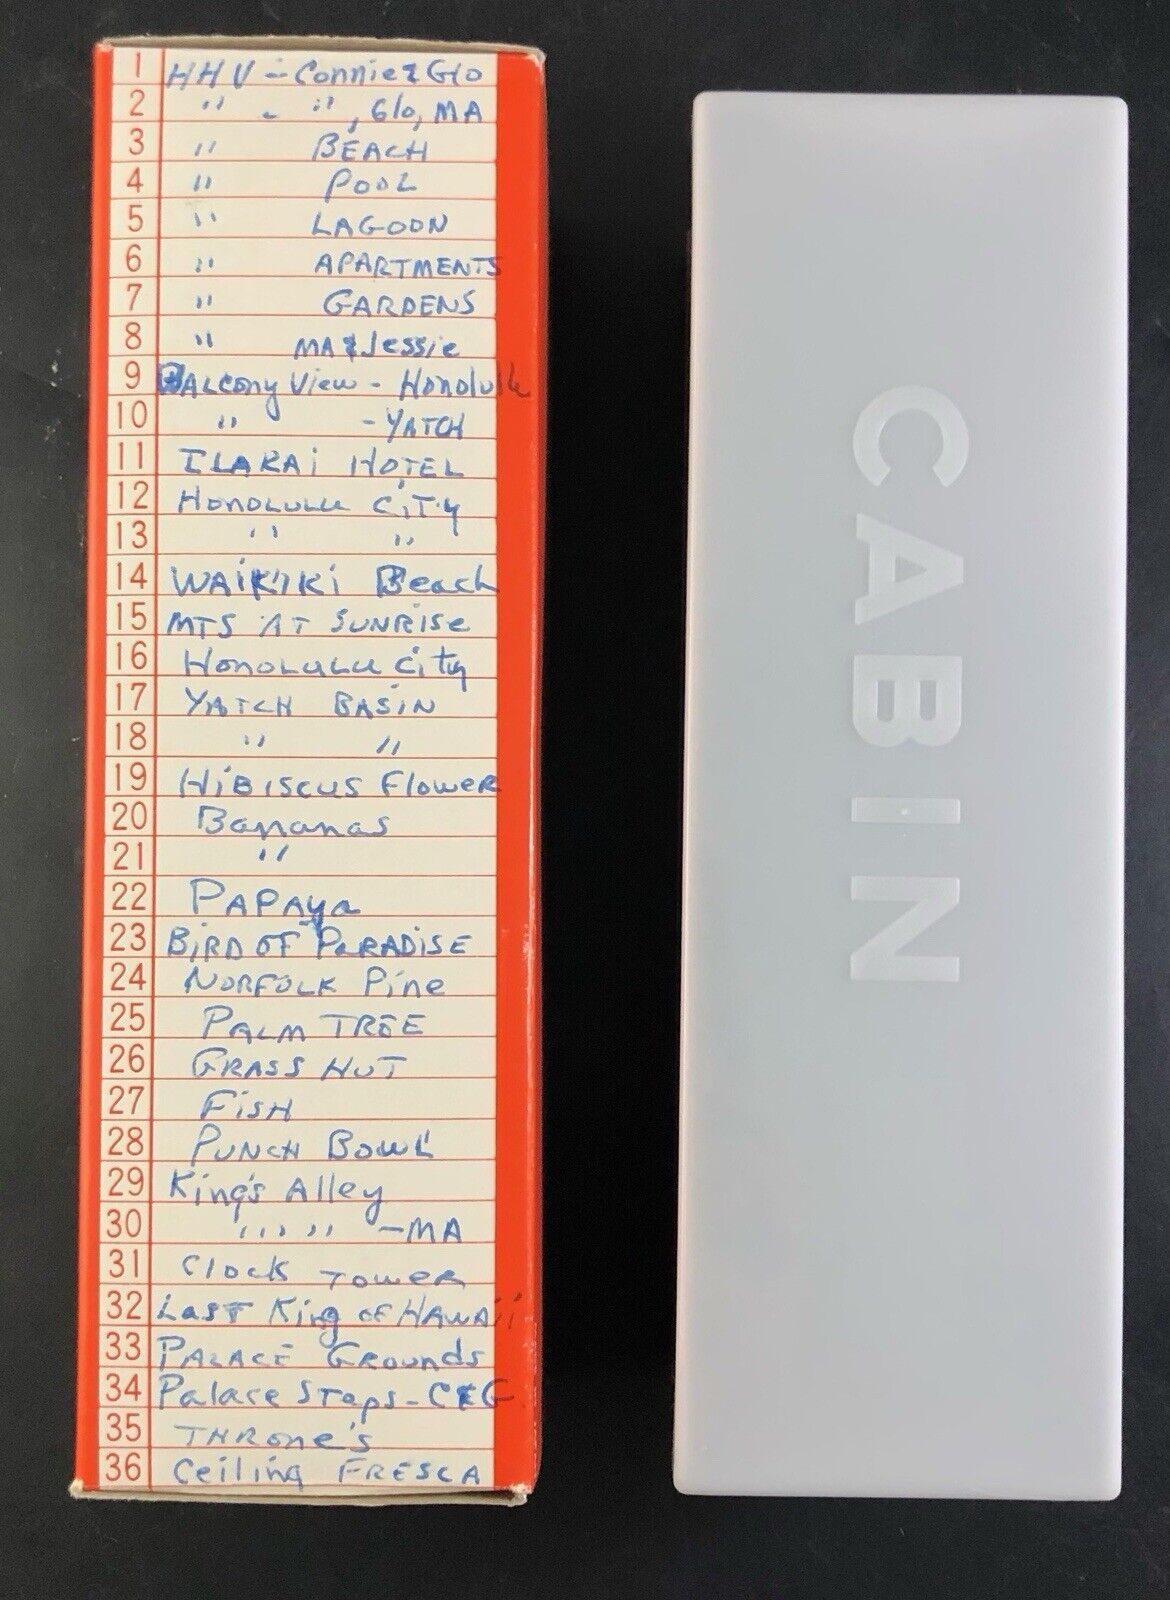 1 HHV - Connie & Glo
2 " - ", Glo, MA
3 " BEACH
4 " POOL
5 " LAGOON
6 " APARTMENTS
7 " GARDENS
8 " MA & Jessie
9 BALCONY View - Honolulu
10 " - YATCH
11 ILAKAI HOTEL
12 HONOLULU CiTy
13 " "
14 WAIKIKI Beach
15 MTS AT SUNRISE
16 HONOLULU City
17 YATCH BASIN
18 " "
19 HIBISCUS FLOWER
20 Bananas
21 "
22 PAPAya
23 BIRD OF PARADISE
24 NORFOLK Pine
25 PALM TREE
26 GRASS HUT
27 FISH
28 PUNCH BOWL
29 King's Alley
30 " " -MA
31 Clock TOWER
32 LAST King OF HAWAii
33 PALACE Grounds
34 Palace Steps - C & G
35 THRone's
36 Ceiling FRESCA
CABIN